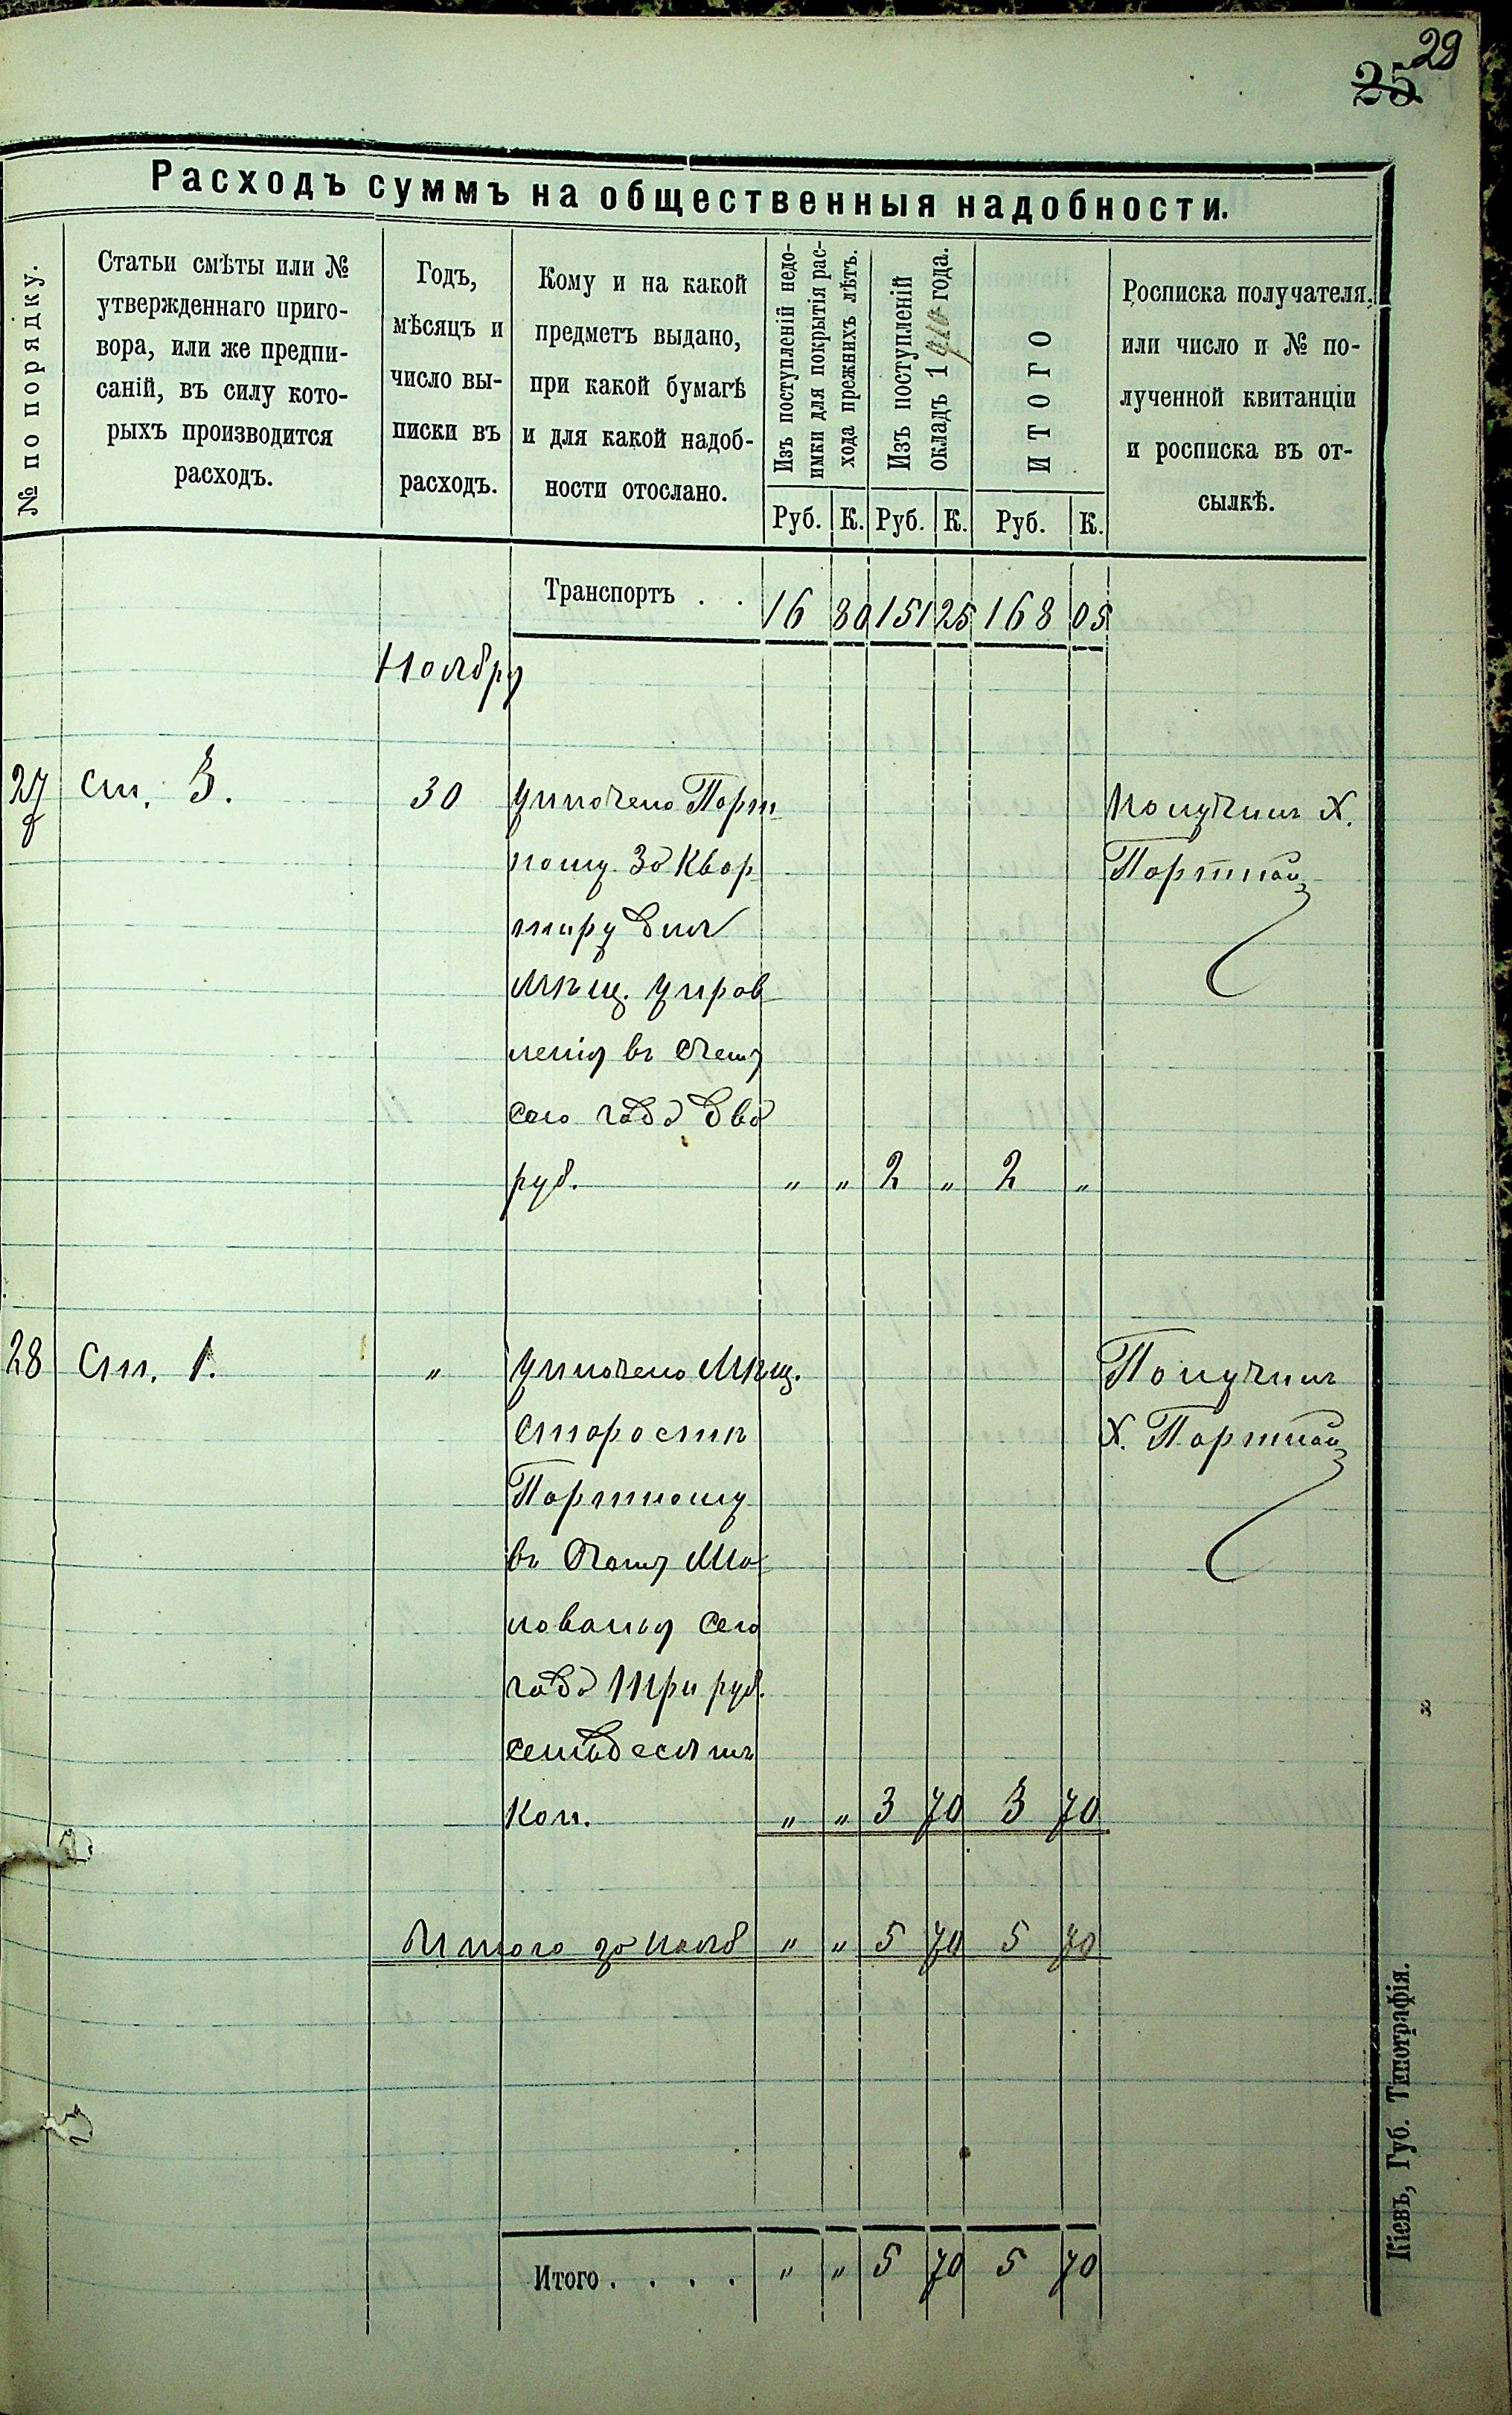 29
25
Расходъ суммъ на общественныя надобности.
№ по порядку.
Статьи смѣты или №
утвержденнаго приго-
вора, или же предпи-
саній, въ силу кото-
рыхъ производится
расходъ.
Годъ,
мѣсяцъ и
число вы-
писки въ
расходъ.
Кому и на какой
предметъ выдано,
при какой бумагѣ
и для какой надоб-
ности отослано.
Изъ поступленій недо-
имки для покрытія рас-
хода прежнихъ лѣтъ.
Изъ поступленій
окладъ 1910 года.
ИТОГО
Росписка получателя,
или число и № по-
лученной квитанціи
и росписка въ от-
сылкѣ.
Руб. К. Руб. К. Руб. К.
Транспортъ . . 16 80 151 25 168 05
Ноября
27 Ст. 3. 30 Уплочено Порт
ному за Квар
тиру для
Мѣщ. Управ
ленія въ счетъ
сего года два
руб. " " 2 " 2 "
Получилъ Х.
Портной
28 Ст. 1. " Уплочено Мѣщ.
Старостѣ
Портному
въ счетъ жа
лованья сего
года три руб.
семьдесятъ
коп. " " 3 70 3 70
Получилъ
Х. Портной
Итого за нояб " " 5 70 5 70
Итого . . . . " " 5 70 5 70
Кіевъ, Губ. Типографія.